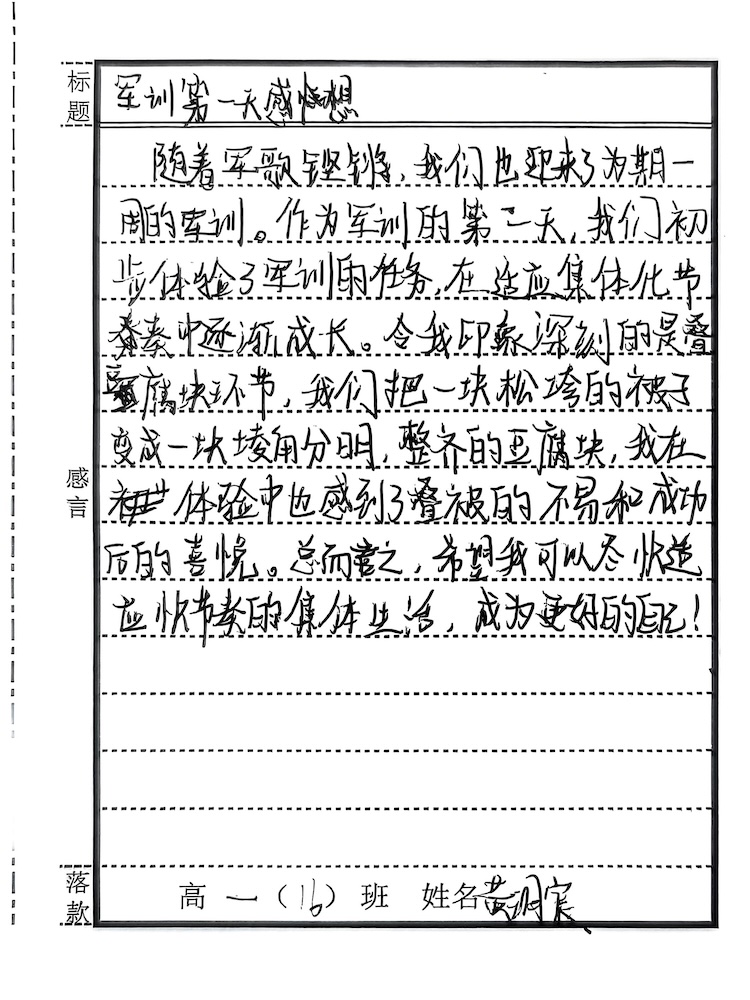 标题
军训第一天感想
随着军歌铿锵，我们也迎来了为期一
周的军训。作为军训的第一天，我们初
步体验了军训的任务，在适应集体化节
奏中逐渐成长。令我印象深刻的是叠
豆腐块环节，我们把一块松垮的被子
变成一块堎角分明，整齐的豆腐块，我在
体验中也感到了叠被的不易和成功
后的喜悦。总而言之，希望我可以尽快适
应快节奏的集体生活，成为更好的自己！
感言
落款
高一（16）班 姓名黄